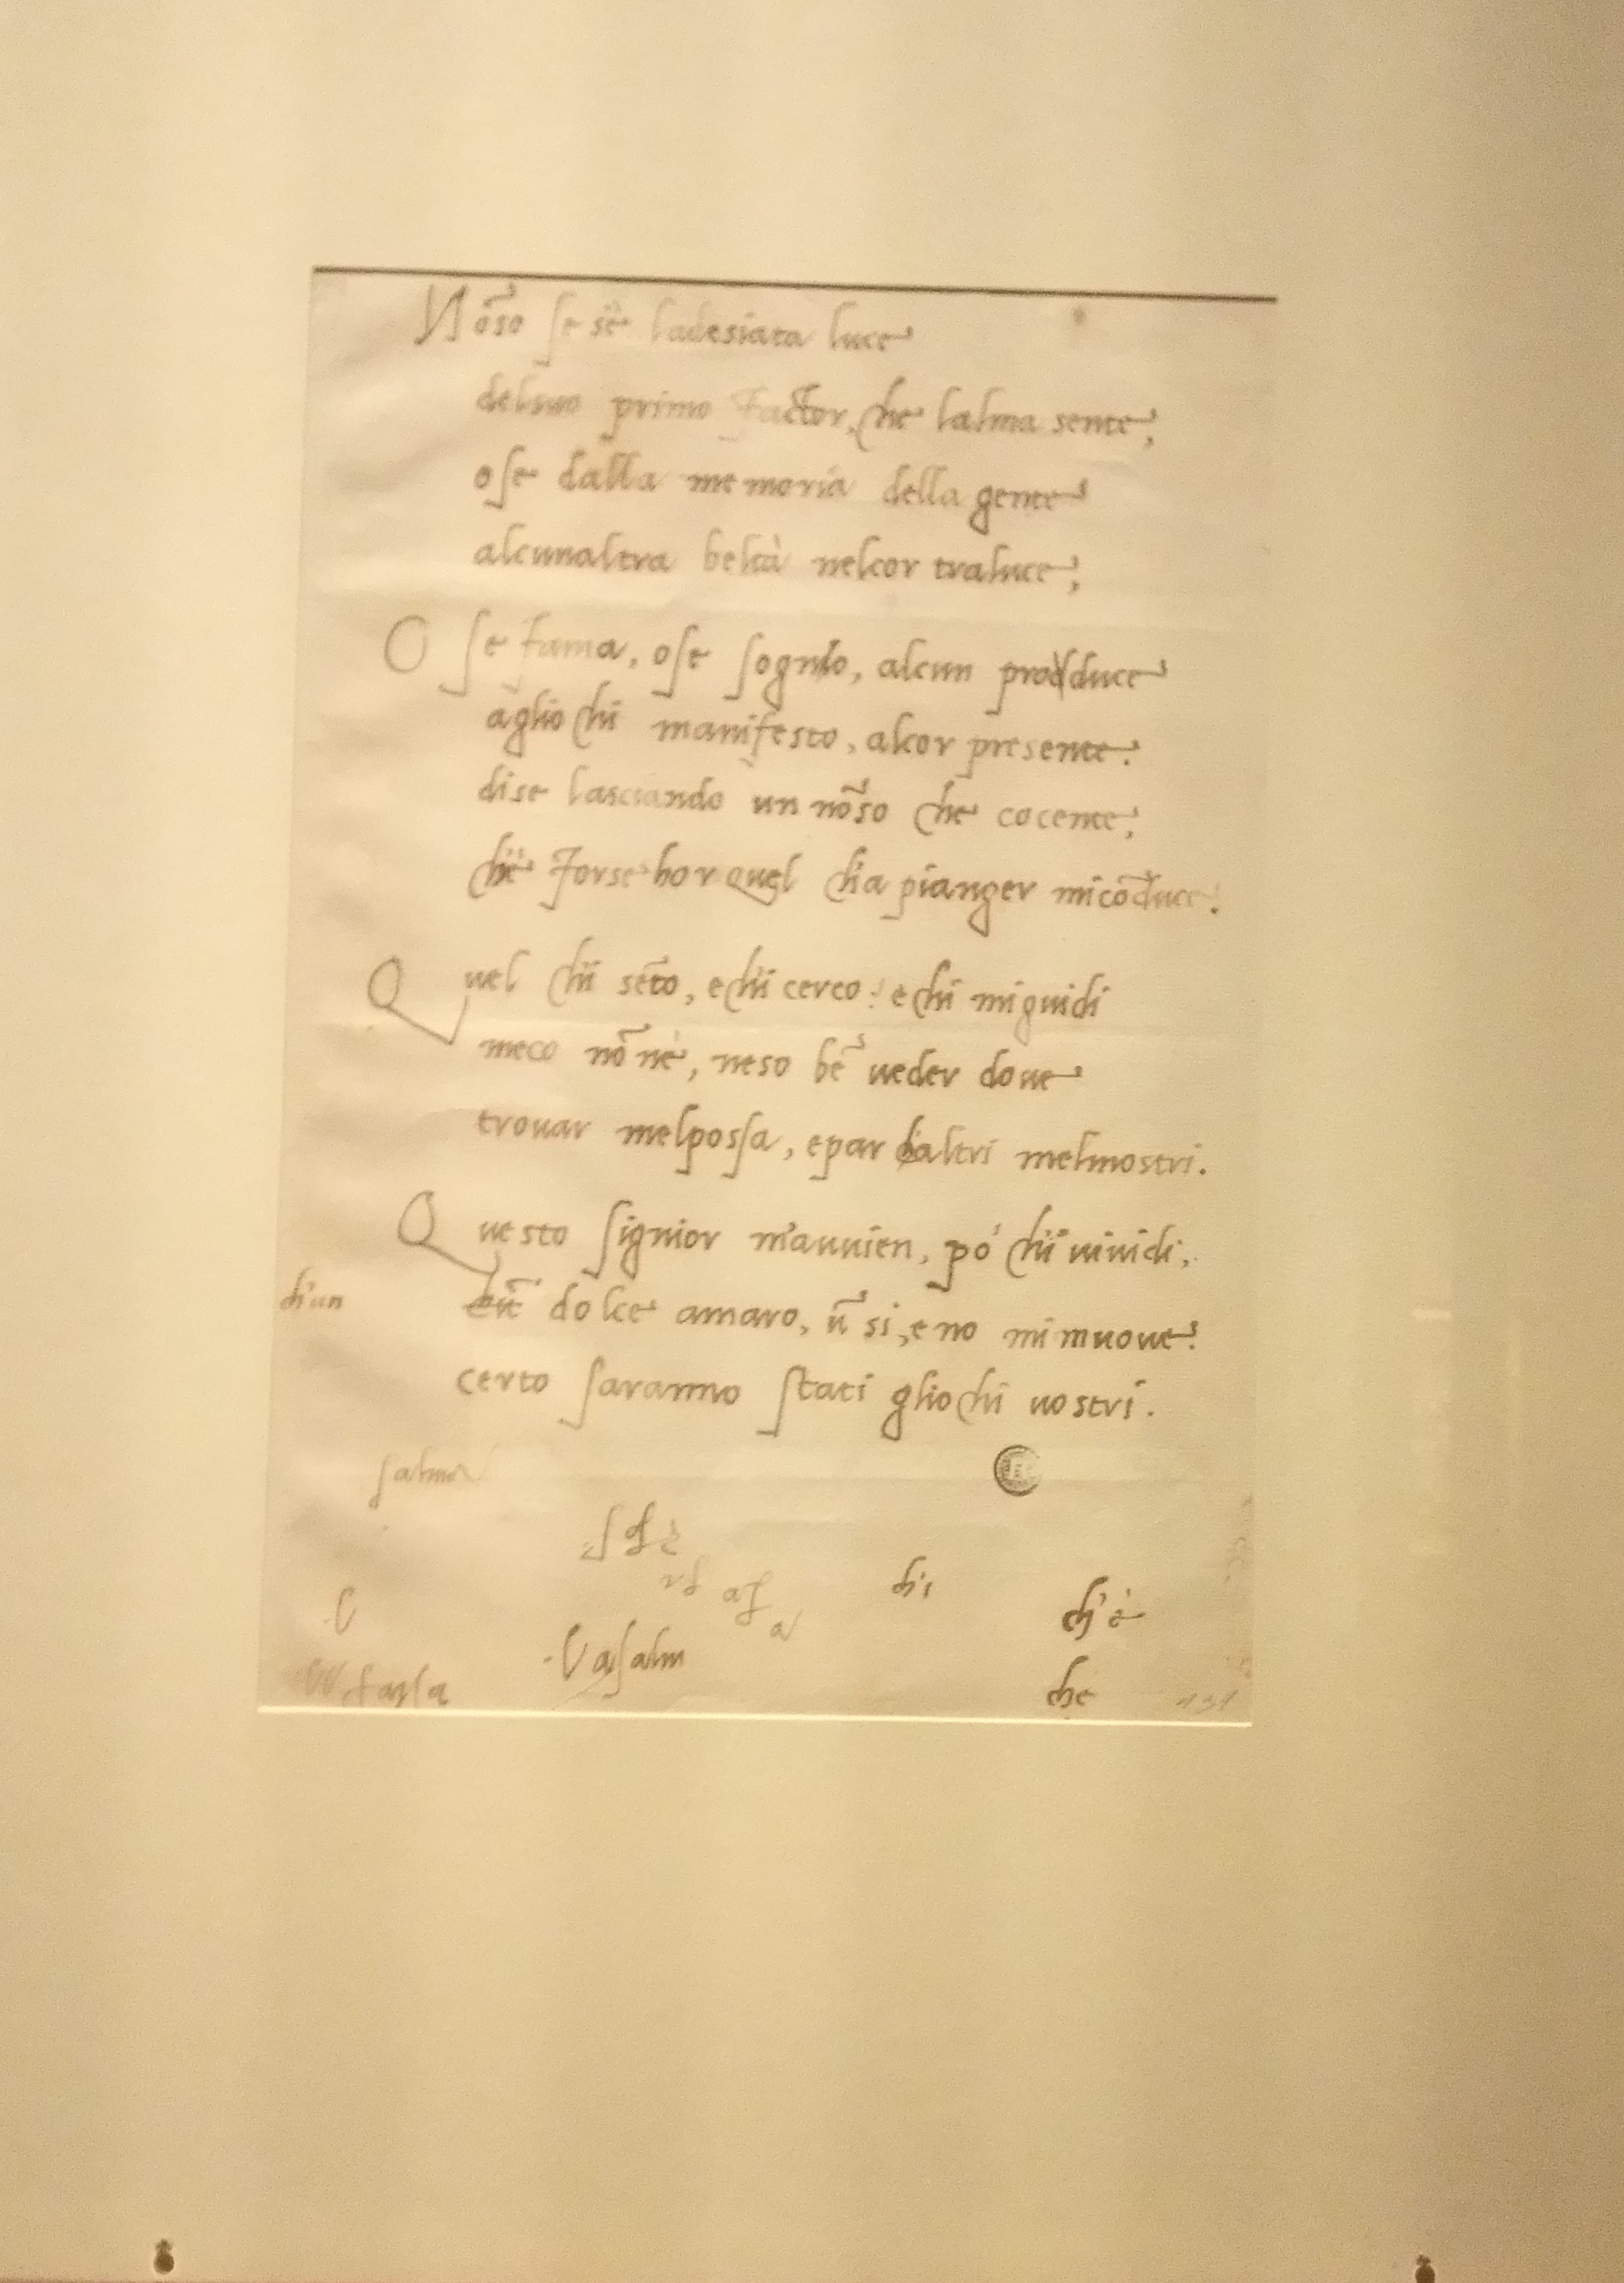 Nõso se s'è ladesiata luce
delsuo primo factor, che lalma sente,
ose dalla memoria della gente
alcunaltra beltà nelcor traluce,
O se fama, ose sognio, alcun prodduce
agliochi manifesto, alcor presente.
dise lasciando un nõso che cocente,
ch'è forse hor quel ch'a pianger micõduce.
Quel ch'i sẽto, e ch'i cerco: e chi miguidi
meco nõ nè, neso bẽ ueder doue
trouar melpossa, epar ch'altri melmostri.
Questo signior m'auuien, po' ch'i uiuidi,
ch'un
dolce amaro, ũ si, e no mi muoue.
certo saranno stati gliochi uostri.
salma
ch'i
ch'è
la salm
che